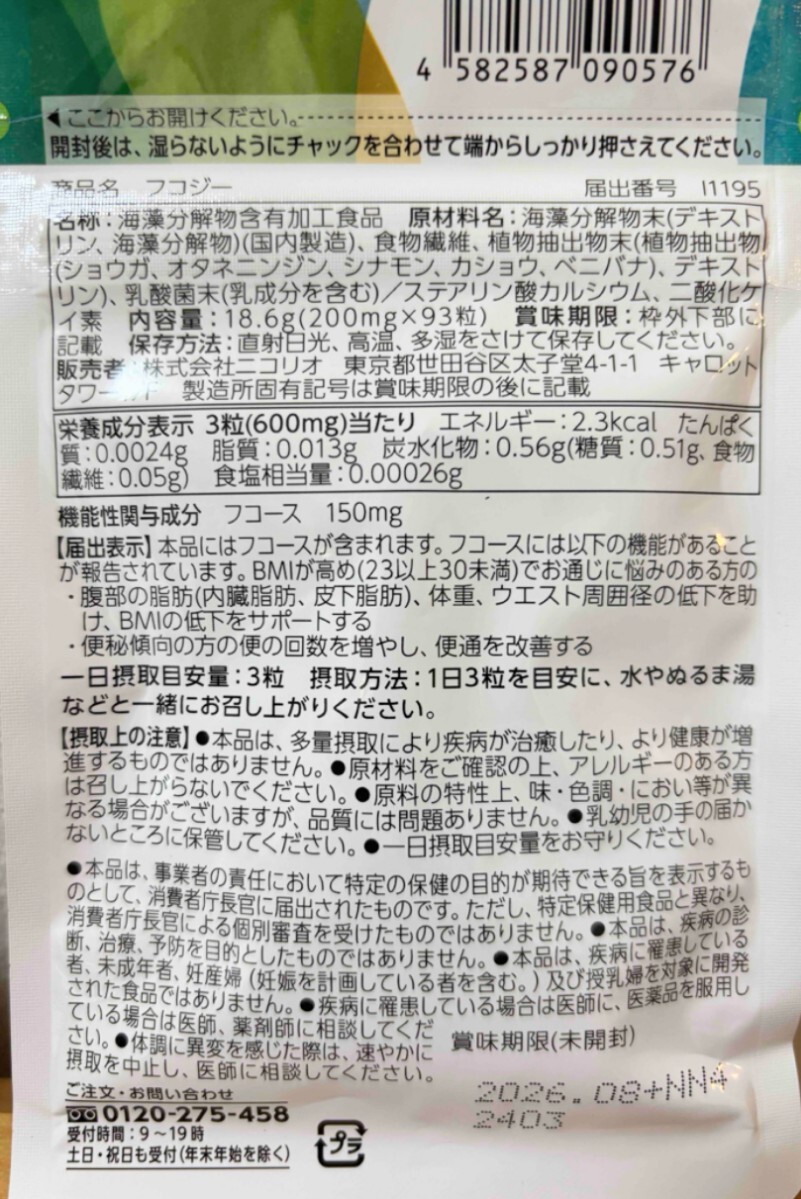 4 582587 090576
◀ここからお開けください。
開封後は、湿らないようにチャックを合わせて端からしっかり押さえてください。
商品名 フコジー 届出番号 I1195
名称：海藻分解物含有加工食品 原材料名：海藻分解物末(デキスト
リン、海藻分解物)(国内製造)、食物繊維、植物抽出物末(植物抽出物
(ショウガ、オタネニンジン、シナモン、カショウ、ベニバナ)、デキスト
リン)、乳酸菌末(乳成分を含む)／ステアリン酸カルシウム、二酸化ケ
イ素 内容量：18.6g(200mg×93粒) 賞味期限：枠外下部に
記載 保存方法：直射日光、高温、多湿をさけて保存してください。
販売者 株式会社ニコリオ 東京都世田谷区太子堂4-1-1 キャロット
タワー 製造所固有記号は賞味期限の後に記載
栄養成分表示 3粒(600mg)当たり エネルギー：2.3kcal たんぱく
質：0.0024g 脂質：0.013g 炭水化物：0.56g(糖質：0.51g、食物
繊維：0.05g) 食塩相当量：0.00026g
機能性関与成分 フコース 150mg
【届出表示】本品にはフコースが含まれます。フコースには以下の機能があること
が報告されています。BMIが高め(23以上30未満)でお通じに悩みのある方の
・腹部の脂肪(内臓脂肪、皮下脂肪)、体重、ウエスト周囲径の低下を助
け、BMIの低下をサポートする
・便秘傾向の方の便の回数を増やし、便通を改善する
一日摂取目安量：3粒 摂取方法：1日3粒を目安に、水やぬるま湯
などと一緒にお召し上がりください。
【摂取上の注意】●本品は、多量摂取により疾病が治癒したり、より健康が増
進するものではありません。●原材料をご確認の上、アレルギーのある方
は召し上がらないでください。●原料の特性上、味・色調・におい等が異
なる場合がございますが、品質には問題ありません。●乳幼児の手の届か
ないところに保管してください。●一日摂取目安量をお守りください。
●本品は、事業者の責任において特定の保健の目的が期待できる旨を表示するも
のとして、消費者庁長官に届出されたものです。ただし、特定保健用食品と異なり、
消費者庁長官による個別審査を受けたものではありません。●本品は、疾病の診
断、治療、予防を目的としたものではありません。●本品は、疾病に罹患している
者、未成年者、妊産婦(妊娠を計画している者を含む。)及び授乳婦を対象に開発
された食品ではありません。●疾病に罹患している場合は医師に、医薬品を服用し
ている場合は医師、薬剤師に相談してくだ
さい。●体調に異変を感じた際は、速やかに
摂取を中止し、医師に相談してください。
賞味期限(未開封)
2026.08+NN4
2403
ご注文・お問い合わせ
0120-275-458
受付時間：9〜19時
土日・祝日も受付(年末年始を除く)
プラ